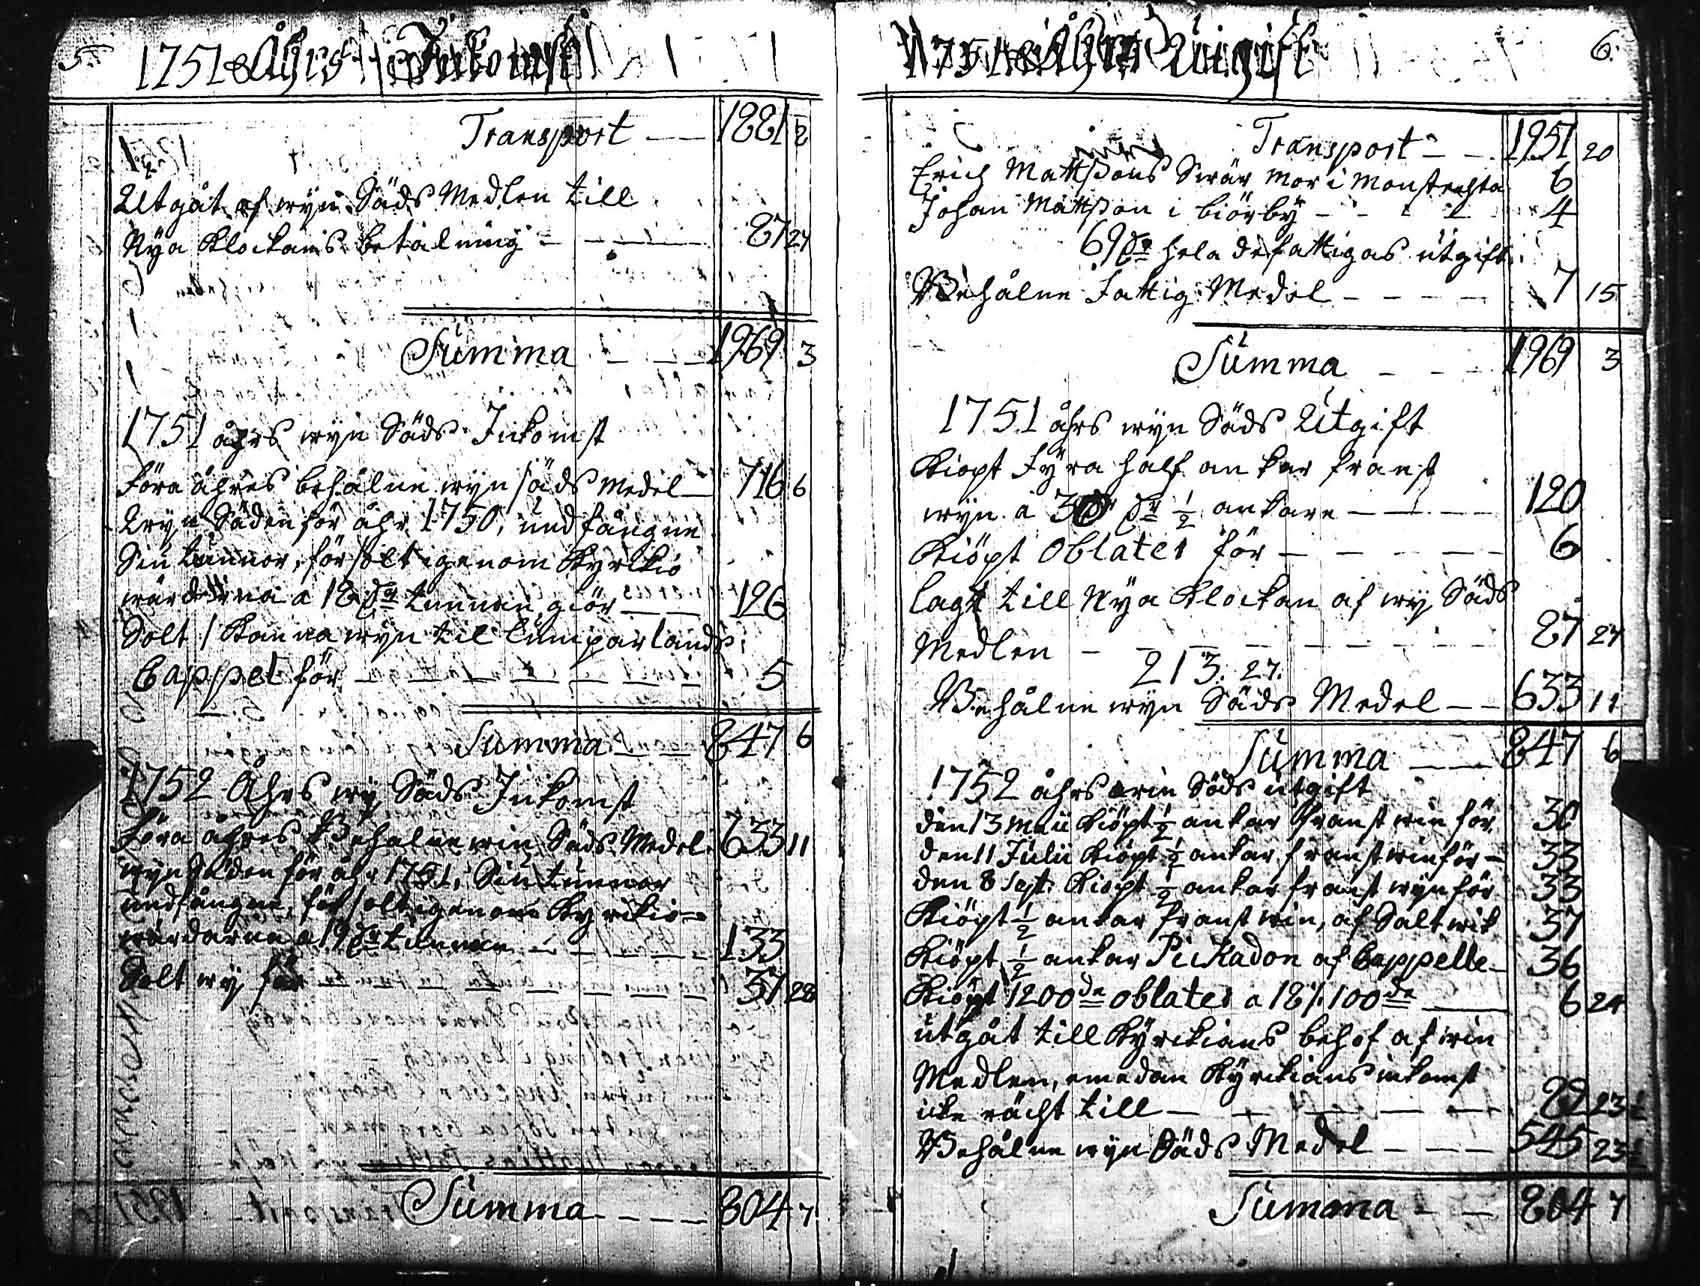 5.
1751 Åhrs Inkomst
Transport — — 1881 8
Utgåt af wyn Säds Medlen till
Nya Klockans betalning — — — 87 27
Summa — — 1969 3
1751 åhrs wyn Säds Inkomst
Föra åhres behålne wyn säds Medel — 716 6
Wyn Säden för åhr 1750, undfångne
Siu tunnor, försolt igenom Kyrkio
wärdarna a 18 dr tunnan giör — — 126
Solt 1 Kanna wyn til Lumparlands
Cappel för — — — — 5
Summa — — 847 6
1752 Åhrs wy Säds Inkomst
Föra åhres Behålne win Säds Medel 633 11
wyn Säden för åhr 1751, Siu tunnor
undfångne, försolt igenom Kyrkio=
wärdarna a 19 dr tunnan — — — 133
Solt wy för — — — — 37 28
Summa — — — 804 7
1751 åhrs Utgift
6.
Transport — — 1951 20
Erich Mattssons Swär mor i
6
Johan Mattsson i Biörby — — — 4
69 dr hela de fattigas utgift
Behålne Fattig Medel — — — — 7 15
Summa — — — 1969 3
1751 åhrs wyn Säds Utgift
Kiöpt Fyra half ankar franst
wyn a 30 dr ½ ankare — — — 120
Kiöpt Oblater för — — — — 6
lagt till Nya Klockan af wy Säds
Medlen — — — — — 87 27
213. 27.
Behålne wyn Säds Medel — — 633 11
Summa — — 847 6
1752 åhrs win Säds utgift
den 13 Maii Kiöpt ½ ankar franst win för 30
den 11 Julii Kiöpt ½ ankar franst win för — 33
den 8 Sept: Kiöpt ½ ankar franst wyn för 33
Kiöpt ½ ankar franst win, af Saltwik 37
Kiöpt ½ ankar Pickadon af Cappelle — 36
Kiöpt 1200 de oblater a 18/ 100 de — 6 24
utgåt till Kyrkians behof af win
Medlen, emedan Kyrkians inkomst
icke räckt till — — — — 82 23½
Behålne wyn Säds Medel — — — 545 23½
Summa — — 804 7